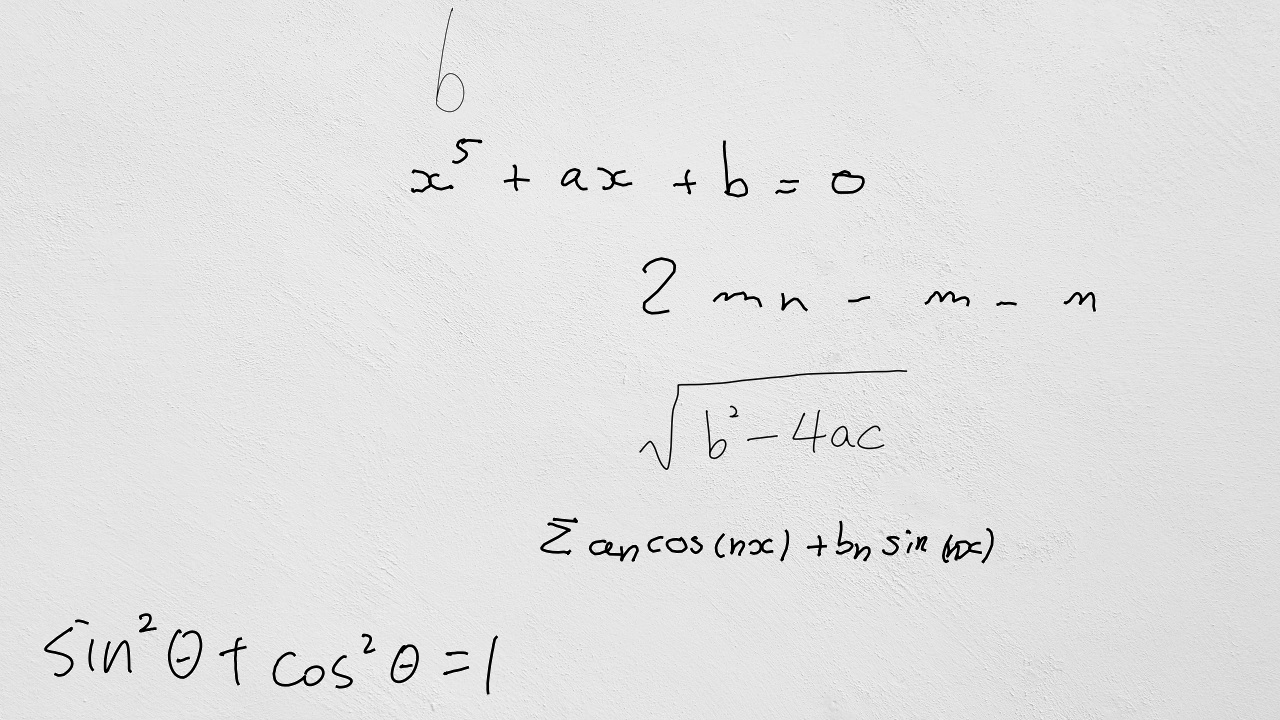 b
x⁵ + ax + b = 0
2 mn - m - n
√(b² - 4ac)
Σ an cos (nx) + bn sin (nx)
sin² θ + cos² θ = 1